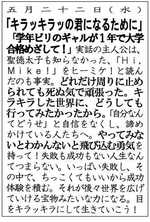 五月二十二日(水)
「キラッキラッの君になるために」
「学年ビリのギャルが１年で大学
合格めざして！」実話の主人公は、
聖徳太子も知らなかった、「Ｈｉ，
Ｍｉｋｅ！」をヒーミケ！と読ん
だのも事実。どれだけ周りに止め
られても死ぬ気で頑張った。キラ
キラした世界に、どうしても
行ってみたかったから。「自分なん
てどうせ」と自信をなくし、諦め
かけている人たちへ、やってみな
いとわかんないと飛び込む勇気を
持って！失敗も成功もない人生なん
てつまらない。いっぱい失敗し、そ
の中で、ちっこくてもいいから成功
体験を積む。それが後々世界を広げ
ていける宝物みたいな力になる。目
をキラキラにして生きていこう！